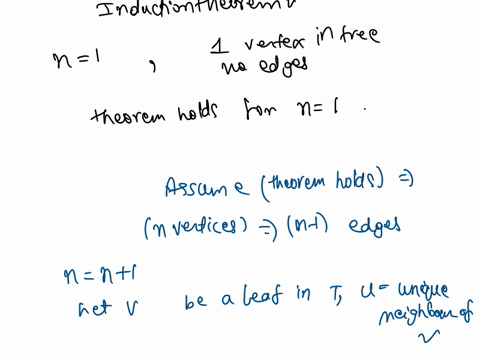 Induction theorem
n=1 , 1 vertex in free
no edges
theorem holds for n=1 .
Assume (theorem holds) ⇒
(n vertices) ⇒ (n-1) edges
n=n+1
net v be a leaf in T, u= unique
neighbour of
v